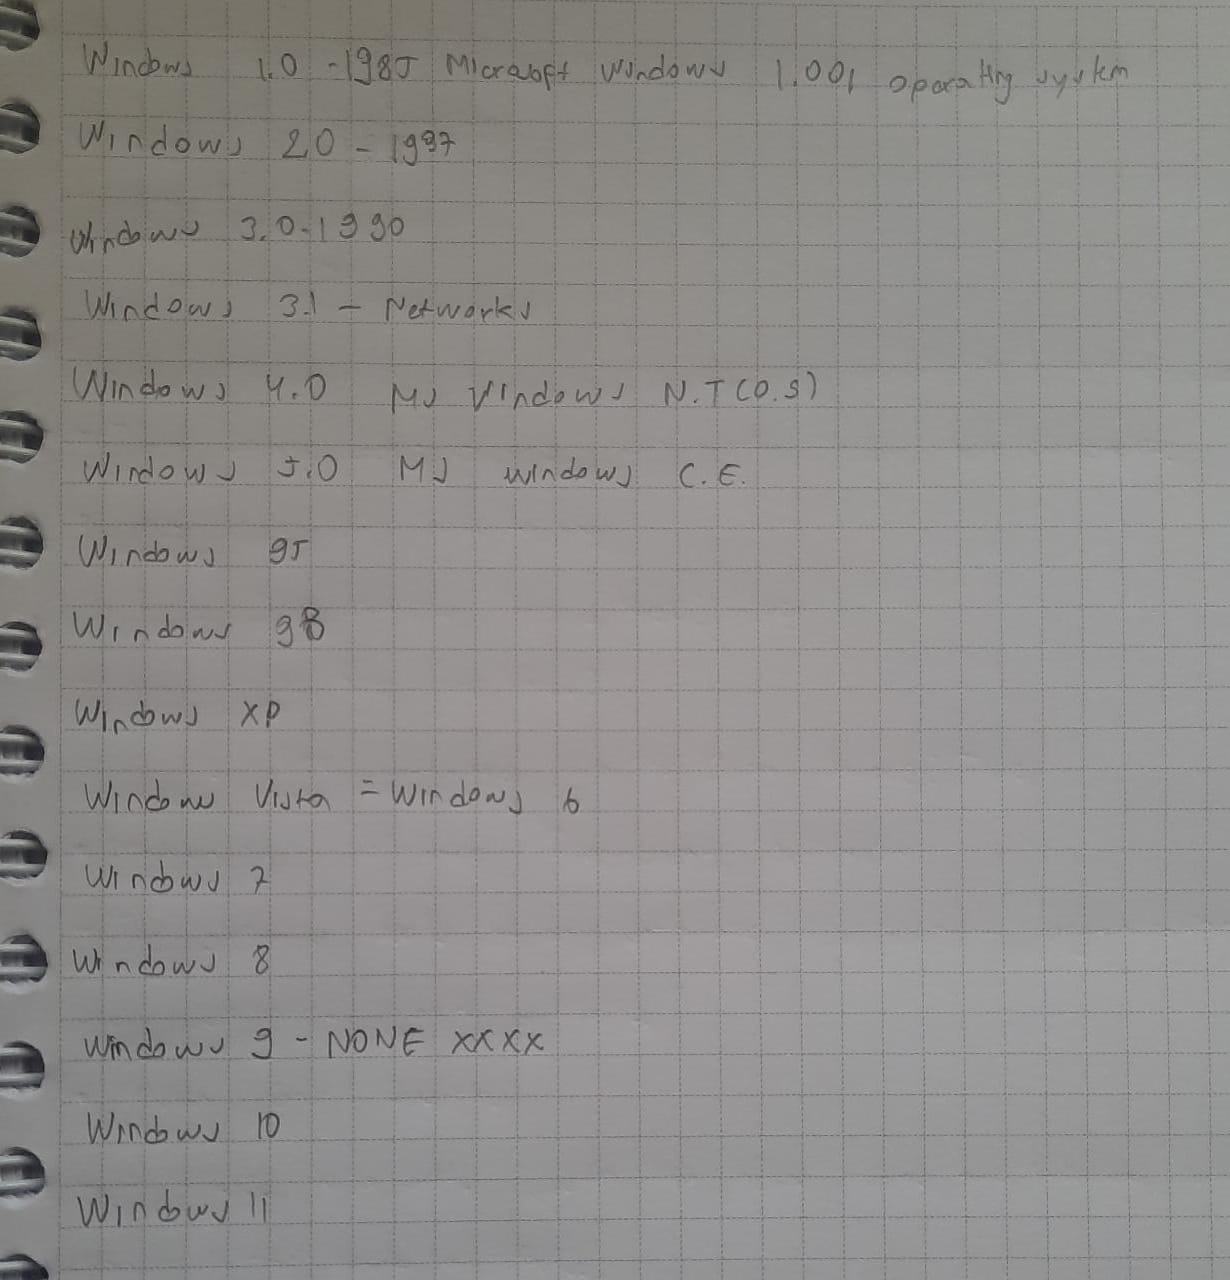 Windows 1.0 - 1985 Microsoft Windows 1.001 operating system
Windows 2.0 - 1987
Windows 3.0.1990
Windows 3.1 - Networks
Windows 4.0 MS Windows N.T (O.S)
Windows 5.0 MS windows C.E.
Windows 95
Windows 98
Windows XP
Windows Vista = Windows 6
Windows 7
Windows 8
Windows 9 - NONE XXXX
Windows 10
Windows 11